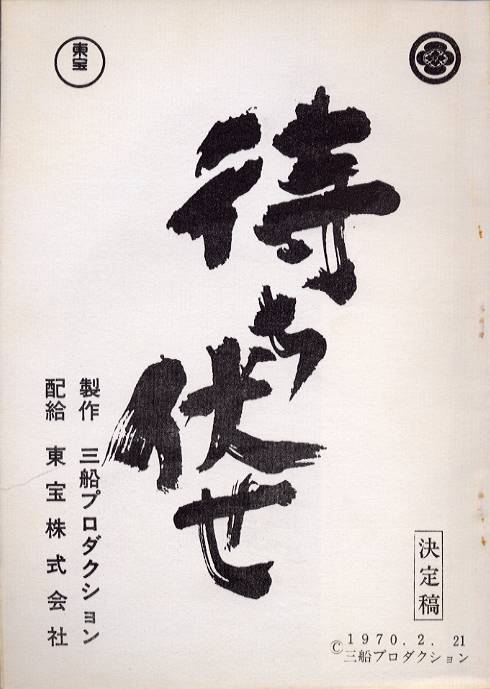 東宝
待ち伏せ
製作 三船プロダクション
配給 東宝株式会社
決定稿
1970.2.21
©三船プロダクション